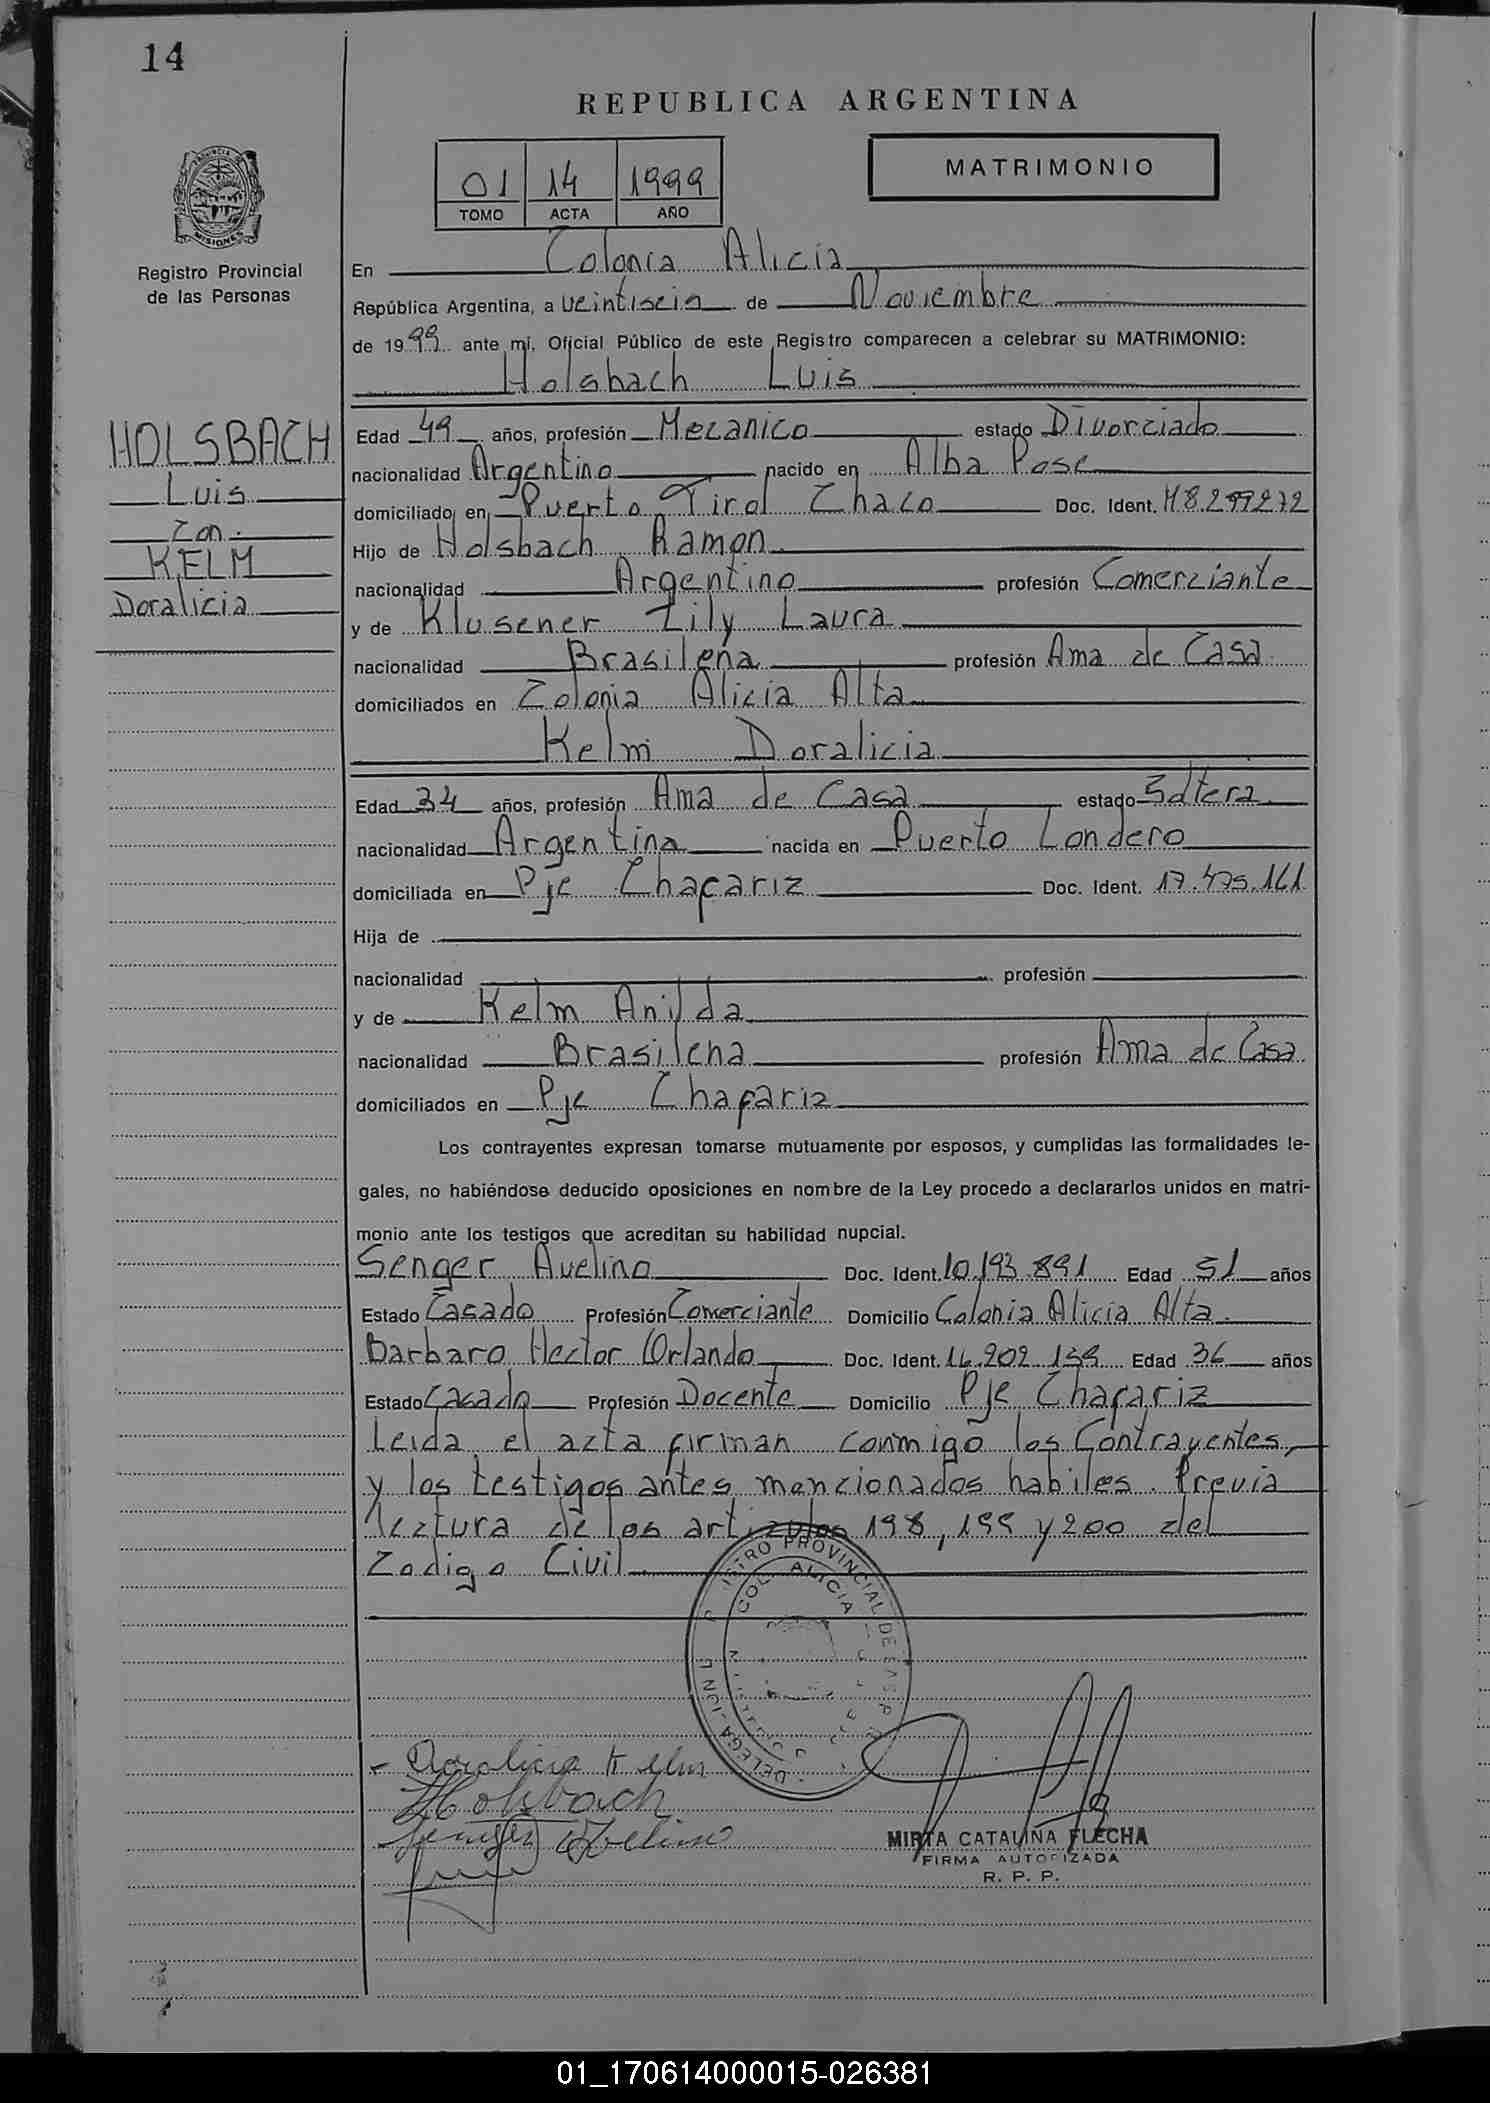 14
REPUBLICA ARGENTINA
MATRIMONIO
01 14 1999
TOMO ACTA AÑO
PROVINCIA DE
MISIONES
Registro Provincial
de las Personas
En Colonia Alicia
República Argentina, a veintiseis de Noviembre
de 1999 ante mí, Oficial Público de este Registro comparecen a celebrar su MATRIMONIO:
Holsbach Luis
HOLSBACH
Luis
Con
KELM
Doralicia
Edad 49 años, profesión Mecanico estado Divorciado
nacionalidad Argentino nacido en Alba Pose
domiciliado en Puerto Tirol Chaco Doc. Ident. M8.299272
Hijo de Holsbach Ramon
nacionalidad Argentino profesión Comerciante
y de Klusener Lily Laura
nacionalidad Brasileña profesión Ama de Casa
domiciliados en Colonia Alicia Alta
Kelm Doralicia
Edad 34 años, profesión Ama de Casa estado Soltera
nacionalidad Argentina nacida en Puerto Londero
domiciliada en Pje Chafariz Doc. Ident. 17.475.161
Hija de
nacionalidad profesión
y de Kelm Anilda
nacionalidad Brasileña profesión Ama de Casa
domiciliados en Pje Chafariz
Los contrayentes expresan tomarse mutuamente por esposos, y cumplidas las formalidades le-
gales, no habiéndose deducido oposiciones en nombre de la Ley procedo a declararlos unidos en matri-
monio ante los testigos que acreditan su habilidad nupcial.
Senger Avelino Doc. Ident. 10.193.891 Edad 51 años
Estado Casado Profesión Comerciante Domicilio Colonia Alicia Alta
Barbaro Hector Orlando Doc. Ident. 16.202.159 Edad 36 años
Estado Casado Profesión Docente Domicilio Pje Chafariz
Leida el acta firman conmigo los Contrayentes,
y los testigos antes mencionados habiles. Previa
lectura de los articulos 198, 199 y 200 del
Codigo Civil
PROVINCIAL DE
COL. ALICIA
Doralicia Kelm
Holsbach
Senger Avelino
MIRTA CATALINA FLECHA
FIRMA AUTORIZADA
R. P. P.
01_170614000015-026381